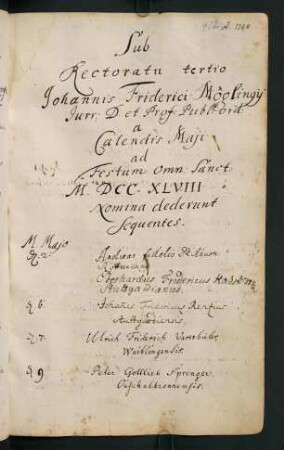 Sub
Rectoratu tertio
Johannis Friderici Möglingij
Jur. D. et Prof. Publ. Ord
a
Calendis Maji
ad
Festum Omn. Sanct.
M DCC XLVIII
Nomina dederunt
Sequentes.
M. Majo
Andreas fidelis
Eberhardus Fridericus
Stuttgardianus.
6. Johannes Fridericus
Stuttgardiensis.
7. Ulrich Friderich Varnbüler,
Waiblingensis.
9 Peter Gottlieb Sprenger,
Oeschelbronnensis.